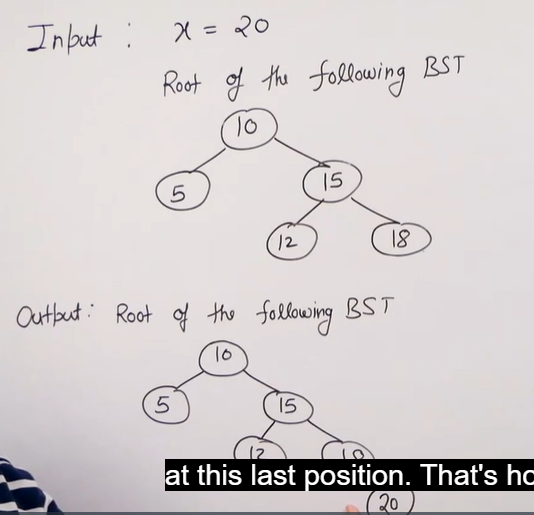 Input : x = 20
Root of the following BST
10
5 15
12 18
Output: Root of the following BST
10
5 15
12
at this last position. That's ho
20